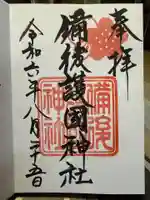 奉拝
備後護國神社
備後
神社
令和六年八月二十五日